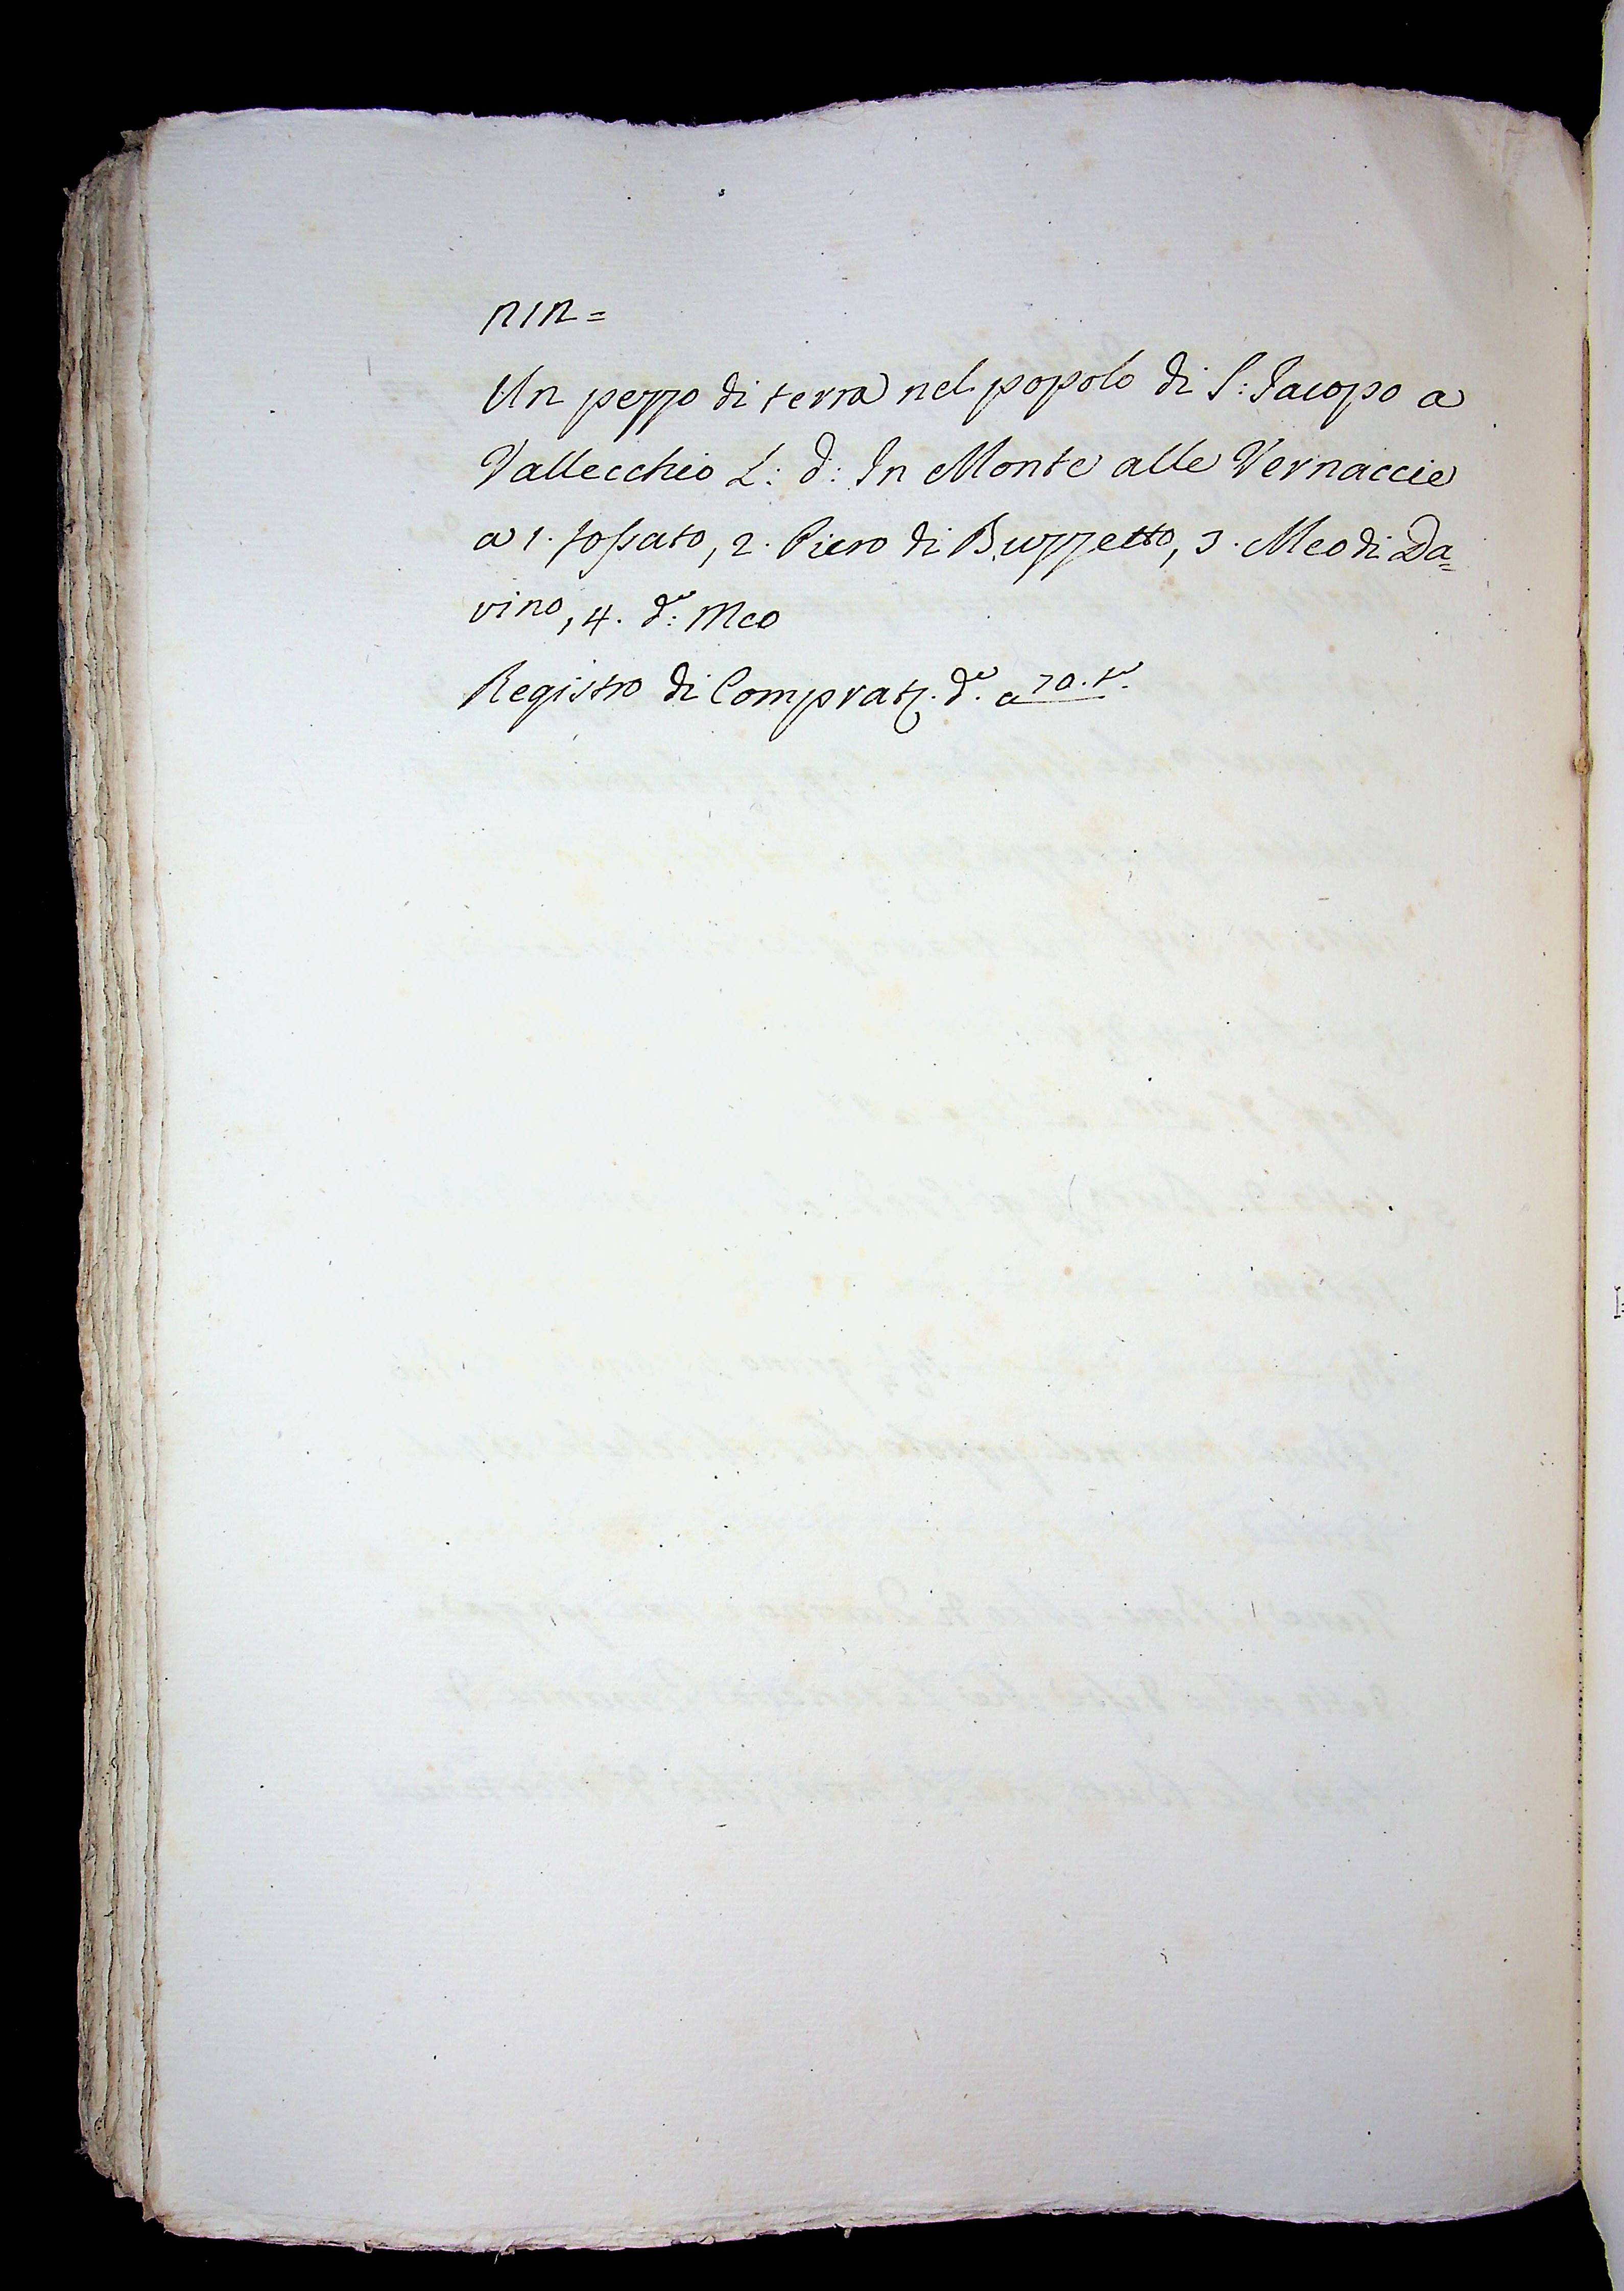 nin=
Un pezzo di terra nel popolo di S: Jacopo a
Vallecchio L: d: In Monte alle Vernaccie
a 1. fossato, 2. Piero di Buzzetto, 3. Meo di Da=
vino, 4. do: Meo
Registro di Compratz. do. a 70. to.